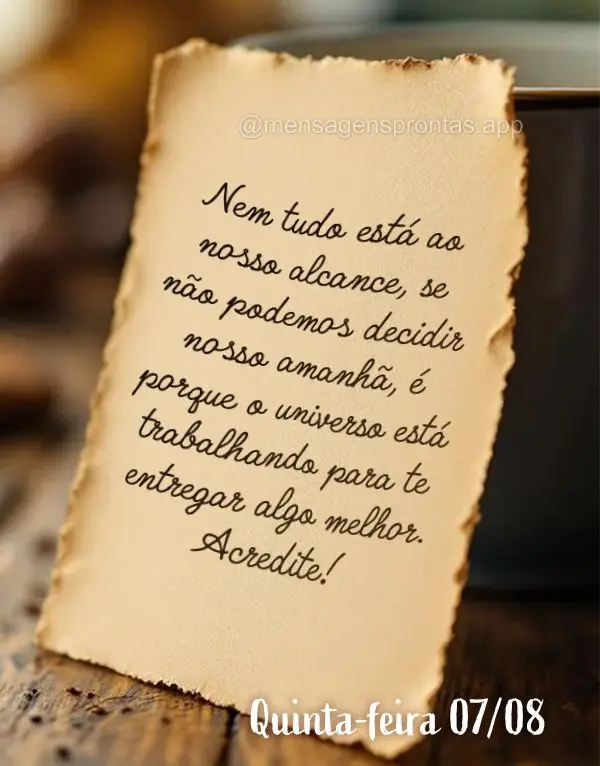 @mensagensprontas.app
Nem tudo está ao
nosso alcance, se
não podemos decidir
nosso amanhã, é
porque o universo está
trabalhando para te
entregar algo melhor.
Acredite!
Quinta-feira 07/08